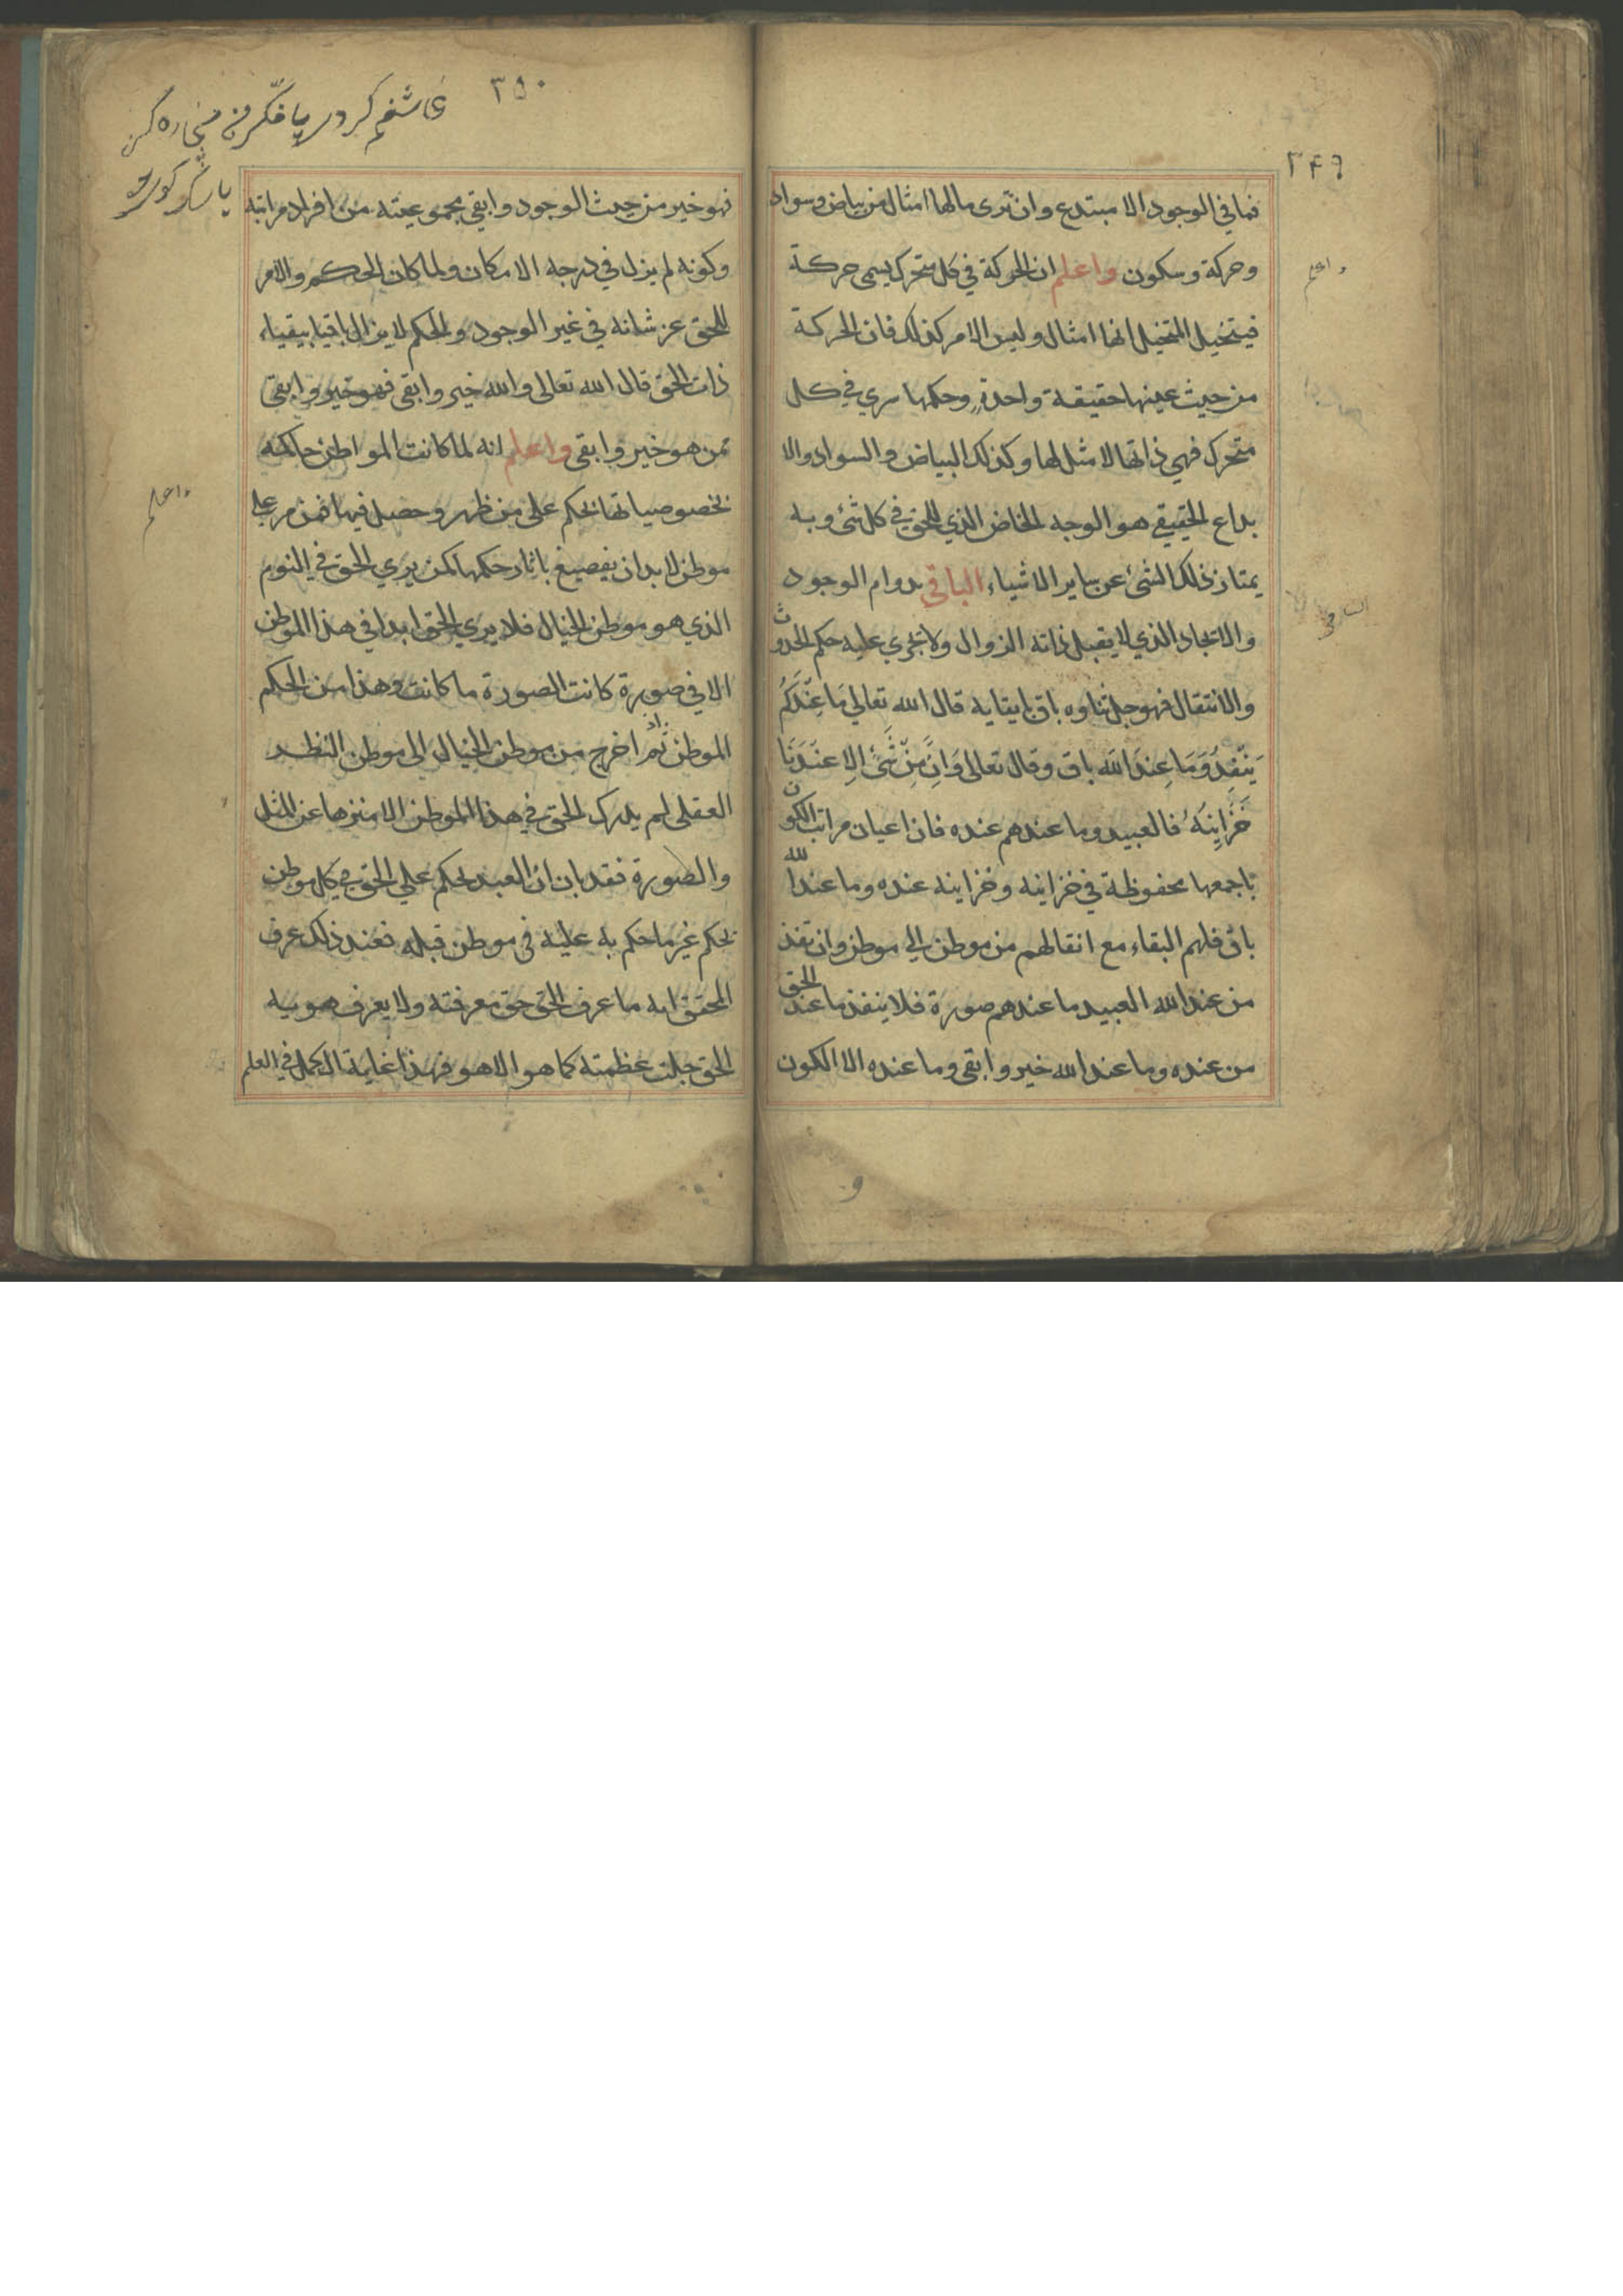 ٣٤٩
فما في الوجود الا مبتدع وان ترى مالها امثال من بياض وسواد
وحركة وسكون واعلم ان الحركة في كل متحرك يسمى حركة
فيتخيل المتخيل انها امثال وليس الامر كذلك فان الحركة
من حيث عينها حقيقة واحدة وحكمها سري في كل
متحرك فهي ذاتها لا مثل لها وكذلك البياض والسواد والا
بداع الحقيقي هو الوجه الخاص الذي للحق في كل شئ وبه
يمتاز ذلك الشئ عن ساير الاشياء الباقي بدوام الوجود
والاتجاد الذي لا يقبل ذاته الزوال ولا تجري عليه حكم الحدوث
والانتقال فهو جل ثناوه باق بابقايه قال الله تعالى مَا عِنْدَكُم
يَنْفِدُ وَمَا عِندَ الله باق وقال تعالى وَاِنْ مِنْ شَئ اِلا عندَنَا
خَزَاينُهُ فالعبيد وما عندهم عنده فان اعيان مراتب الكون
باجمعها محفوظة في خزاينه وخزاينه عنده وما عند الله
باق فلهم البقاء مع انقالهم من موطن الى موطن وان تفذ
من عند الله العبيد ما عندهم صورة فلا ينفذ ما عند الحق
من عنده وما عند الله خير وابقى وما عنده الا الكون
واعلم
الباقي
٣٥٠
فهو خير من حيث الوجود وابقى بجموعيته من افراد مراتبه
وكونه لم يزل في درجه الامكان ولما كان الحكم والامر
للحق عز شانه في غير الوجود والحكم لا يزال باقيا ببقياء
ذات الحق قال الله تعالى والله خير وابقى فهو خير وابقى
ممن هو خير وابقى واعلم انه لما كانت المواطن حاكمه
بخصوصياتها تحكم على من ظهر وحصل فيها فمن مر على
موطن لا بد ان يفصيغ باثار حكمها كمن يري الحق في النوم
الذي هو موطن الخيال فلا يري الحق ابدا في هذا الموطن
الا في صورة كانت الصورة ما كانت وهذا من الحكم
الموطن ثم اذا خرج من موطن الخيال الى موطن النظر
العقلى لم يدرك الحق في هذا الموطن الا منزها عن المثل
والصورة فقد بان ان العبد لحكم على الحق في كل موطن
بحكم غير ما حكم به عليه في موطن قبله فعند ذلك عرف
المحقق انه ما عرف الحق حق معرفته ولا يعرف هويه
الحق جلت عظمته كما هو الا هو فهذا غاية الكمل في العلم
واعلم